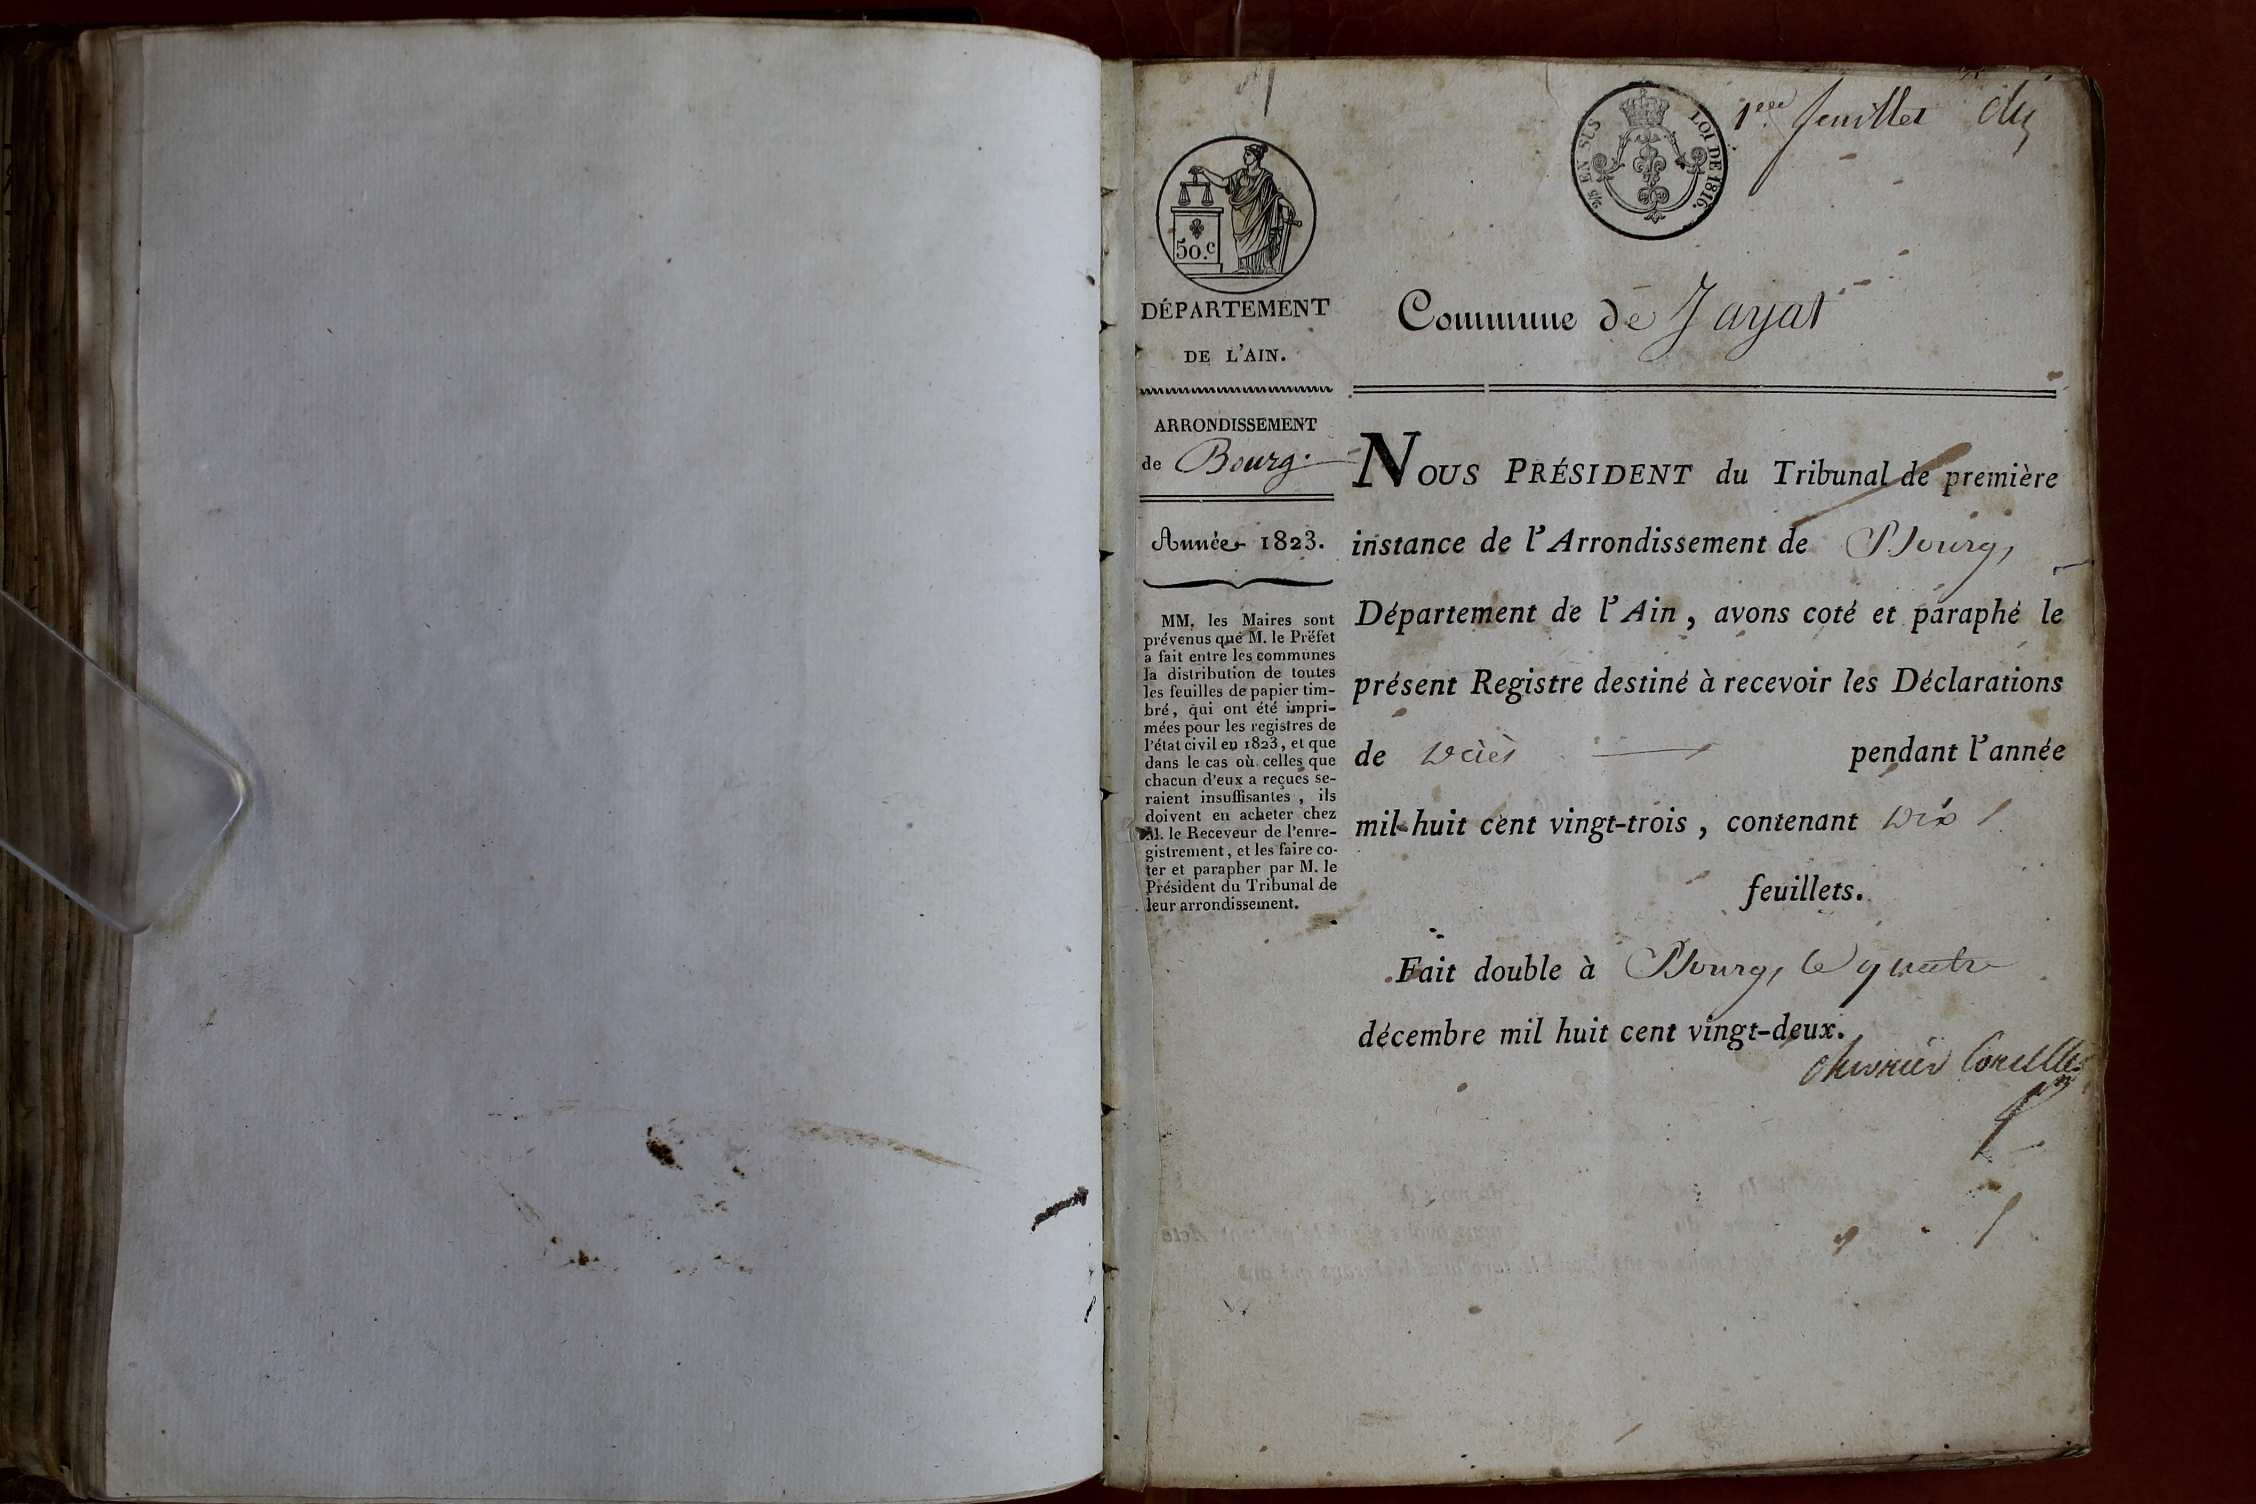 1er feuillet
5/6 EN SUS LOI DE 1816.
50.c
DÉPARTEMENT
DE L'AIN.
ARRONDISSEMENT
de Bourg.
Année 1823.
MM. les Maires sont
prévenus que M. le Préfet
a fait entre les communes
la distribution de toutes
les feuilles de papier tim-
bré, qui ont été impri-
mées pour les registres de
l'état civil en 1823, et que
dans le cas où celles que
chacun d'eux a reçues se-
raient insuffisantes, ils
doivent en acheter chez
M. le Receveur de l'enre-
gistrement, et les faire co-
ter et parapher par M. le
Président du Tribunal de
leur arrondissement.
Commune de Jayat
NOUS PRÉSIDENT du Tribunal de première
instance de l'Arrondissement de Bourg,
Département de l'Ain, avons coté et paraphé le
présent Registre destiné à recevoir les Déclarations
de décès pendant l'année
mil huit cent vingt-trois, contenant dix
feuillets.
Fait double à Bourg, le quatre
décembre mil huit cent vingt-deux.